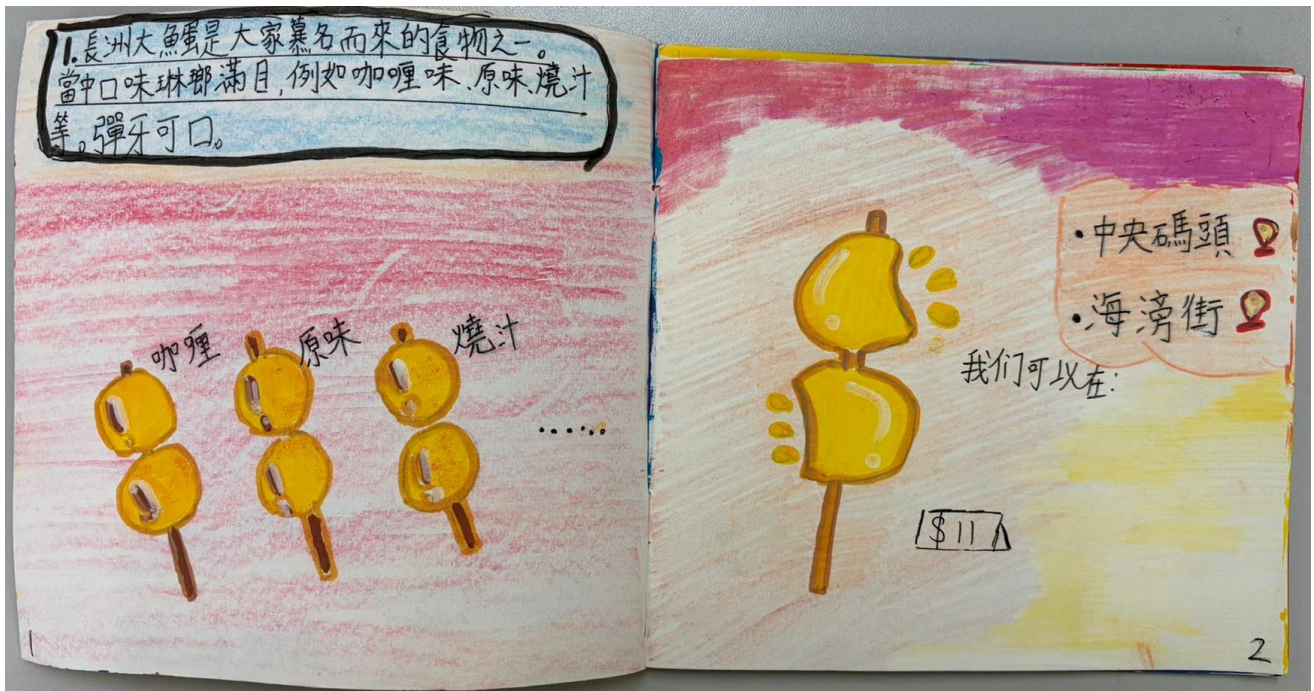 1.長洲大魚蛋是大家慕名而來的食物之一。
當中口味琳瑯滿目,例如咖喱味、原味、燒汁
等。彈牙可口。
咖喱
原味
燒汁
......
1
·中央碼頭
·海滂街
我们可以在:
$11
2